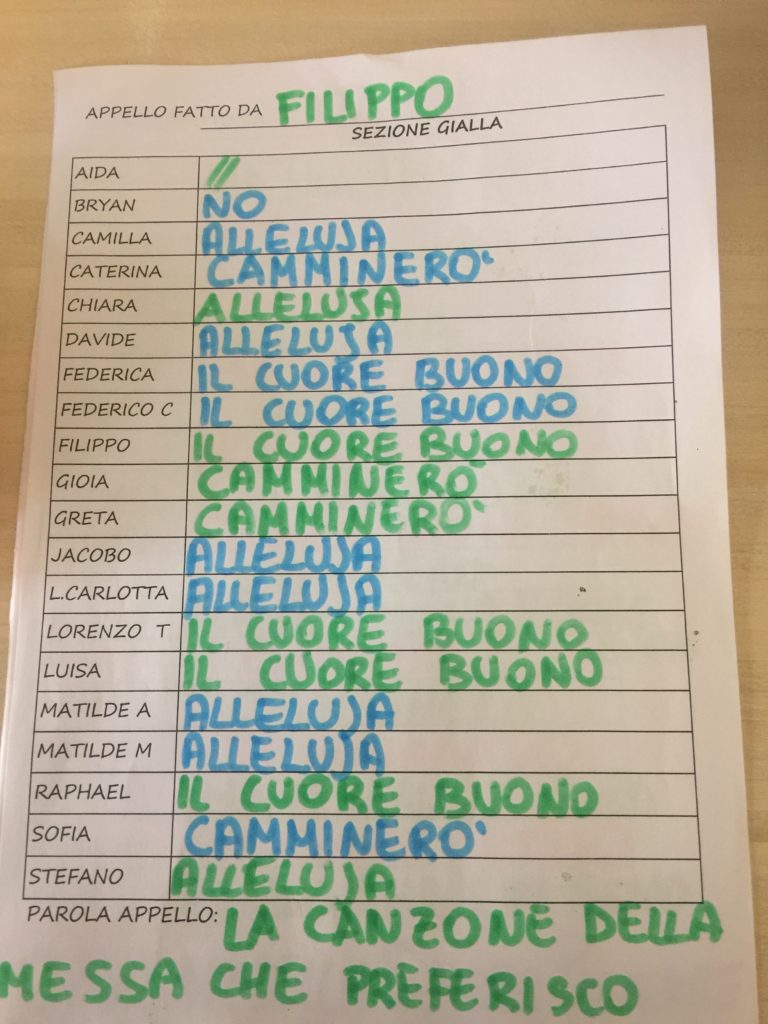 APPELLO FATTO DA FILIPPO
SEZIONE GIALLA
AIDA //
BRYAN NO
CAMILLA ALLELUJA
CATERINA CAMMINERO'
CHIARA ALLELUJA
DAVIDE ALLELUJA
FEDERICA IL CUORE BUONO
FEDERICO C IL CUORE BUONO
FILIPPO IL CUORE BUONO
GIOIA CAMMINERO'
GRETA CAMMINERO'
JACOBO ALLELUJA
L.CARLOTTA ALLELUJA
LORENZO T IL CUORE BUONO
LUISA IL CUORE BUONO
MATILDE A ALLELUJA
MATILDE M ALLELUJA
RAPHAEL IL CUORE BUONO
SOFIA CAMMINERO'
STEFANO ALLELUJA
PAROLA APPELLO: LA CANZONE DELLA
MESSA CHE PREFERISCO